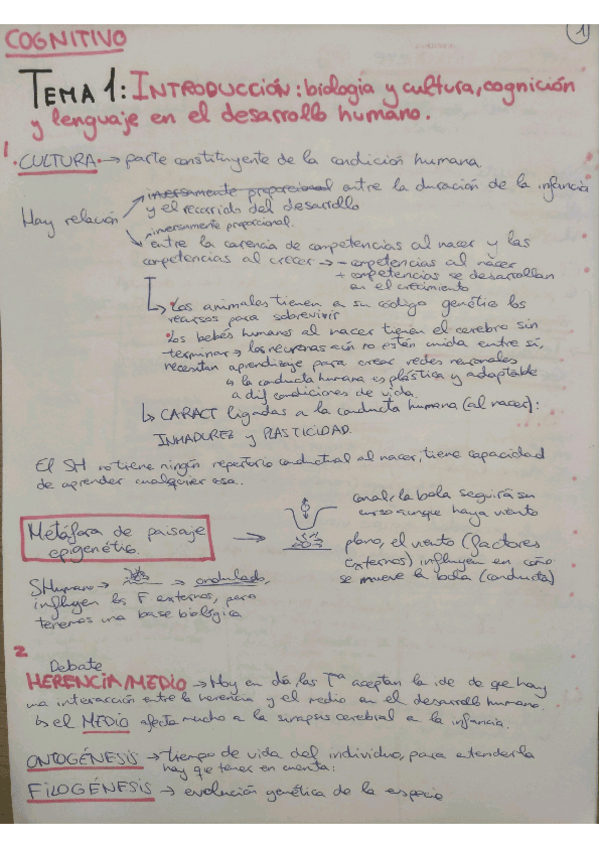 COGNITIVO
1
TEMA 1: INTRODUCCIÓN: biología y cultura, cognición
y lenguaje en el desarrollo humano.
1
• CULTURA → parte constituyente de la condición humana.
inversamente proporcional entre la duración de la infancia
y el recorrido del desarrollo
Hay relación
inversamente proporcional.
entre la carencia de competencias al nacer y las
competencias al crecer → - competencias al nacer
+ competencias se desarrollan
en el crecimiento
↳ • Los animales tienen a su código genético los
recursos para sobrevivir
• Los bebés humanos al nacer tienen el cerebro sin
terminar → las neuronas aún no están unida entre sí,
necesitan aprendizaje para crear redes neuronales
↳ la conducta humana es plástica y adaptable
a dif condiciones de vida.
↳ CARACT ligadas a la conducta humana (al nacer):
INMADUREZ y PLASTICIDAD.
El SH no tiene ningún repertorio conductual al nacer, tiene capacidad
de aprender cualquier cosa.
Metáfora de paisaje
epigenético.
→
canal, la bola seguirá su
curso aunque haya viento
plano, el viento (factores
externos) influyen en cómo
se mueve la bola (conducta)
SHumano → → ondulado,
influyen los F externos, pero
tenemos una base biológica
2
Debate
HERENCIA/MEDIO → Hoy en día, las Tª aceptan la ide de que hay
una interacción entre la herencia y el medio en el desarrollo humano.
↳ el MEDIO afecta mucho a la sinapsis cerebral a la infancia.
ONTOGÉNESIS → tiempo de vida del individuo, para entenderla
hay que tener en cuenta:
FILOGÉNESIS → evolución genética de la especie